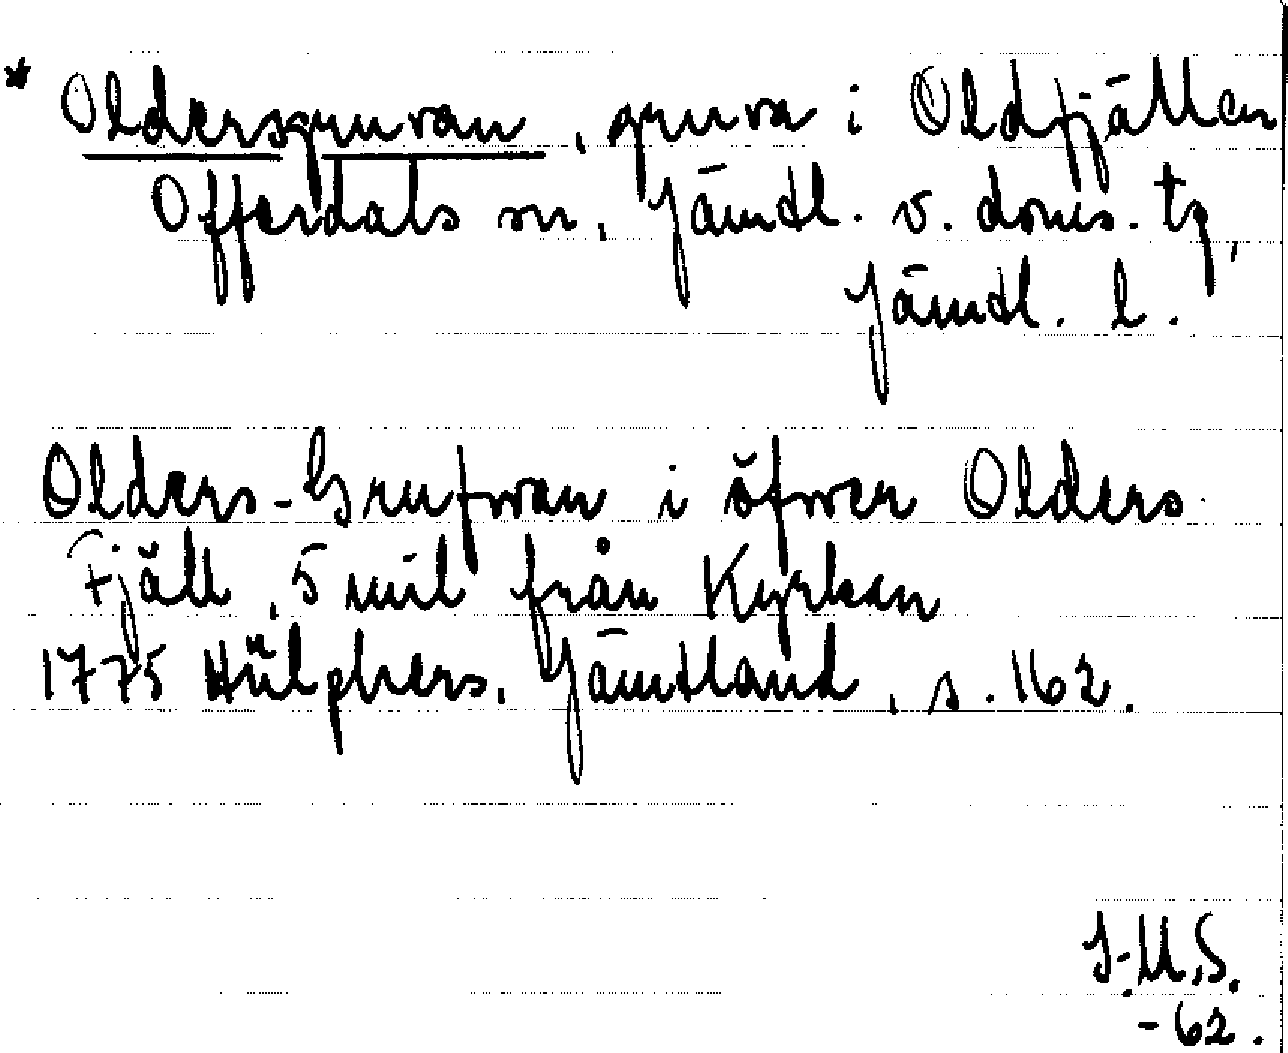 * Oldersgruvan, gruva i Oldfjällen
Offerdals sn, Jämtl. v. doms. tg,
Jämtl. l.
Olders-Grufwan i öfwer Olders
Fjäll, 5 mil från Kyrkan
1775 Hülphers, Jämtland, s. 162.
I-M.S.
-62.